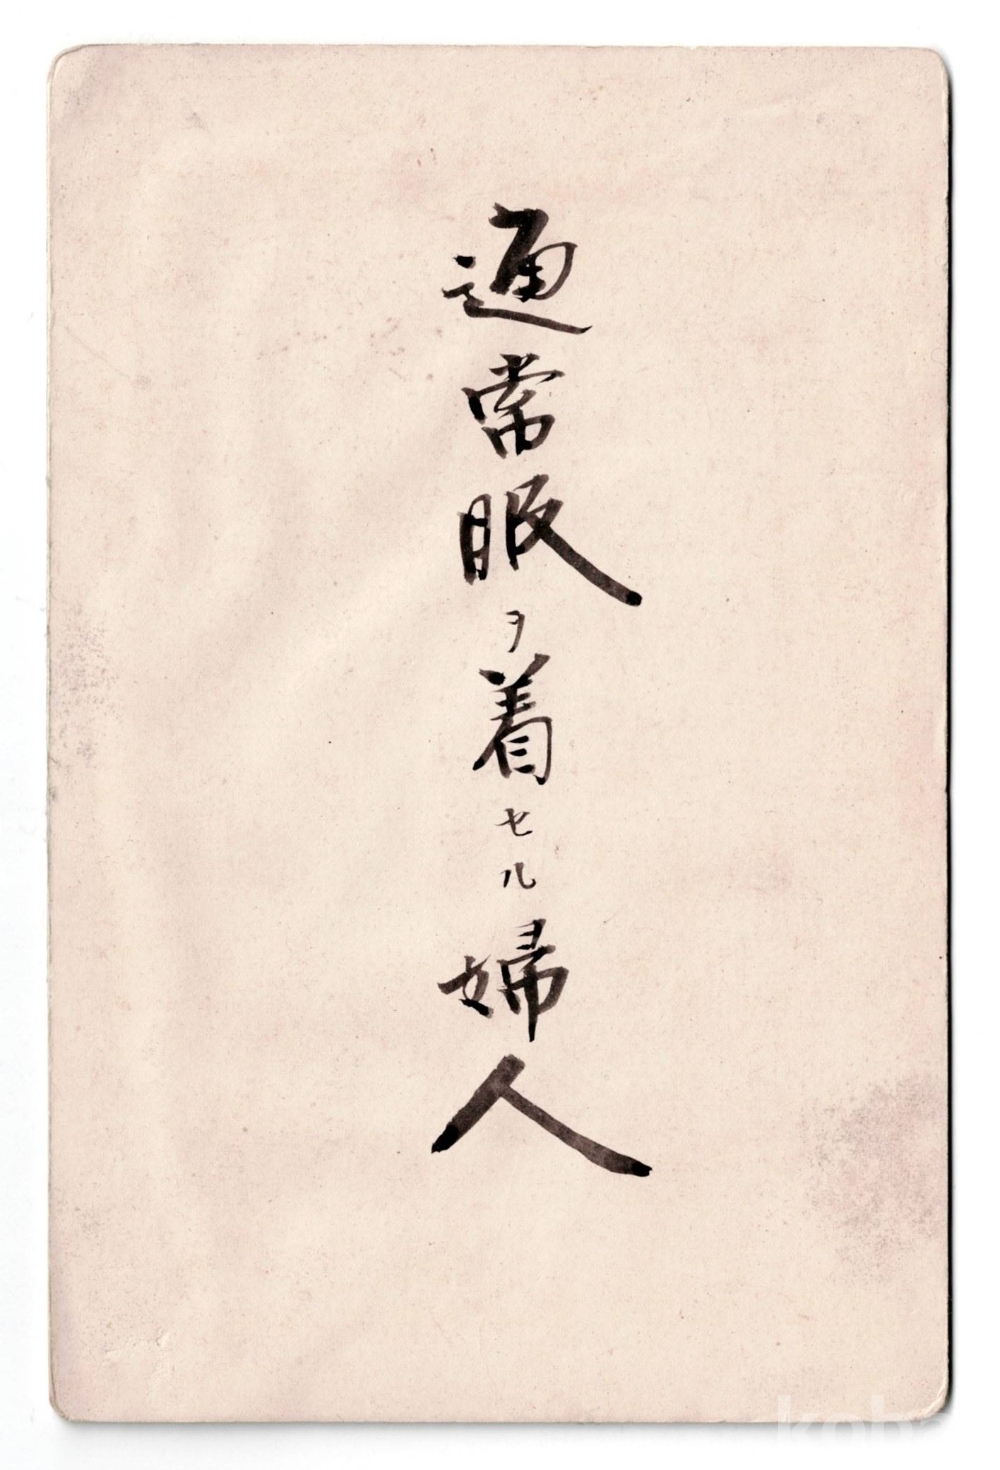 通常服ヲ着セル婦人